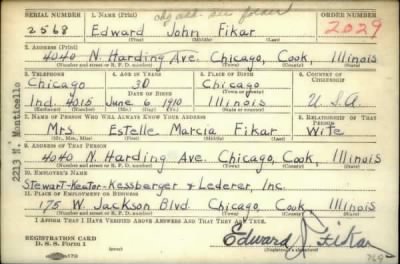 SERIAL NUMBER 1. NAME (Print) ORDER NUMBER
2568 Edward John Fikar 2029
(First) (Middle) (Last)
2. ADDRESS (Print)
4040 N. Harding Ave. Chicago, Cook, Illinois
(Number and street or R. F. D. number) (Town) (County) (State)
3. TELEPHONE 4. AGE IN YEARS 5. PLACE OF BIRTH 6. COUNTRY OF CITIZENSHIP
Chicago 30 Chicago
DATE OF BIRTH
Ind. 4015 June 6 1910 Illinois U.S.A.
(Exchange) (Number) (Mo.) (Day) (Yr.) (State or country)
7. NAME OF PERSON WHO WILL ALWAYS KNOW YOUR ADDRESS 8. RELATIONSHIP OF THAT PERSON
Mrs. Estelle Marcia Fikar Wife
(Mr., Mrs., Miss) (First) (Middle) (Last)
9. ADDRESS OF THAT PERSON
4040 N. Harding Ave. Chicago, Cook, Illinois
(Number and street or R. F. D. number) (Town) (County) (State)
10. EMPLOYER'S NAME
Kessberger & Lederer, Inc.
11. PLACE OF EMPLOYMENT OR BUSINESS
175 W. Jackson Blvd. Chicago, Cook, Illinois
(Number and street or R. F. D. number) (Town) (County) (State)
I AFFIRM THAT I HAVE VERIFIED ABOVE ANSWERS AND THAT THEY ARE TRUE.
REGISTRATION CARD
D. S. S. Form 1
Edward J. Fikar
2213 N. Monticello